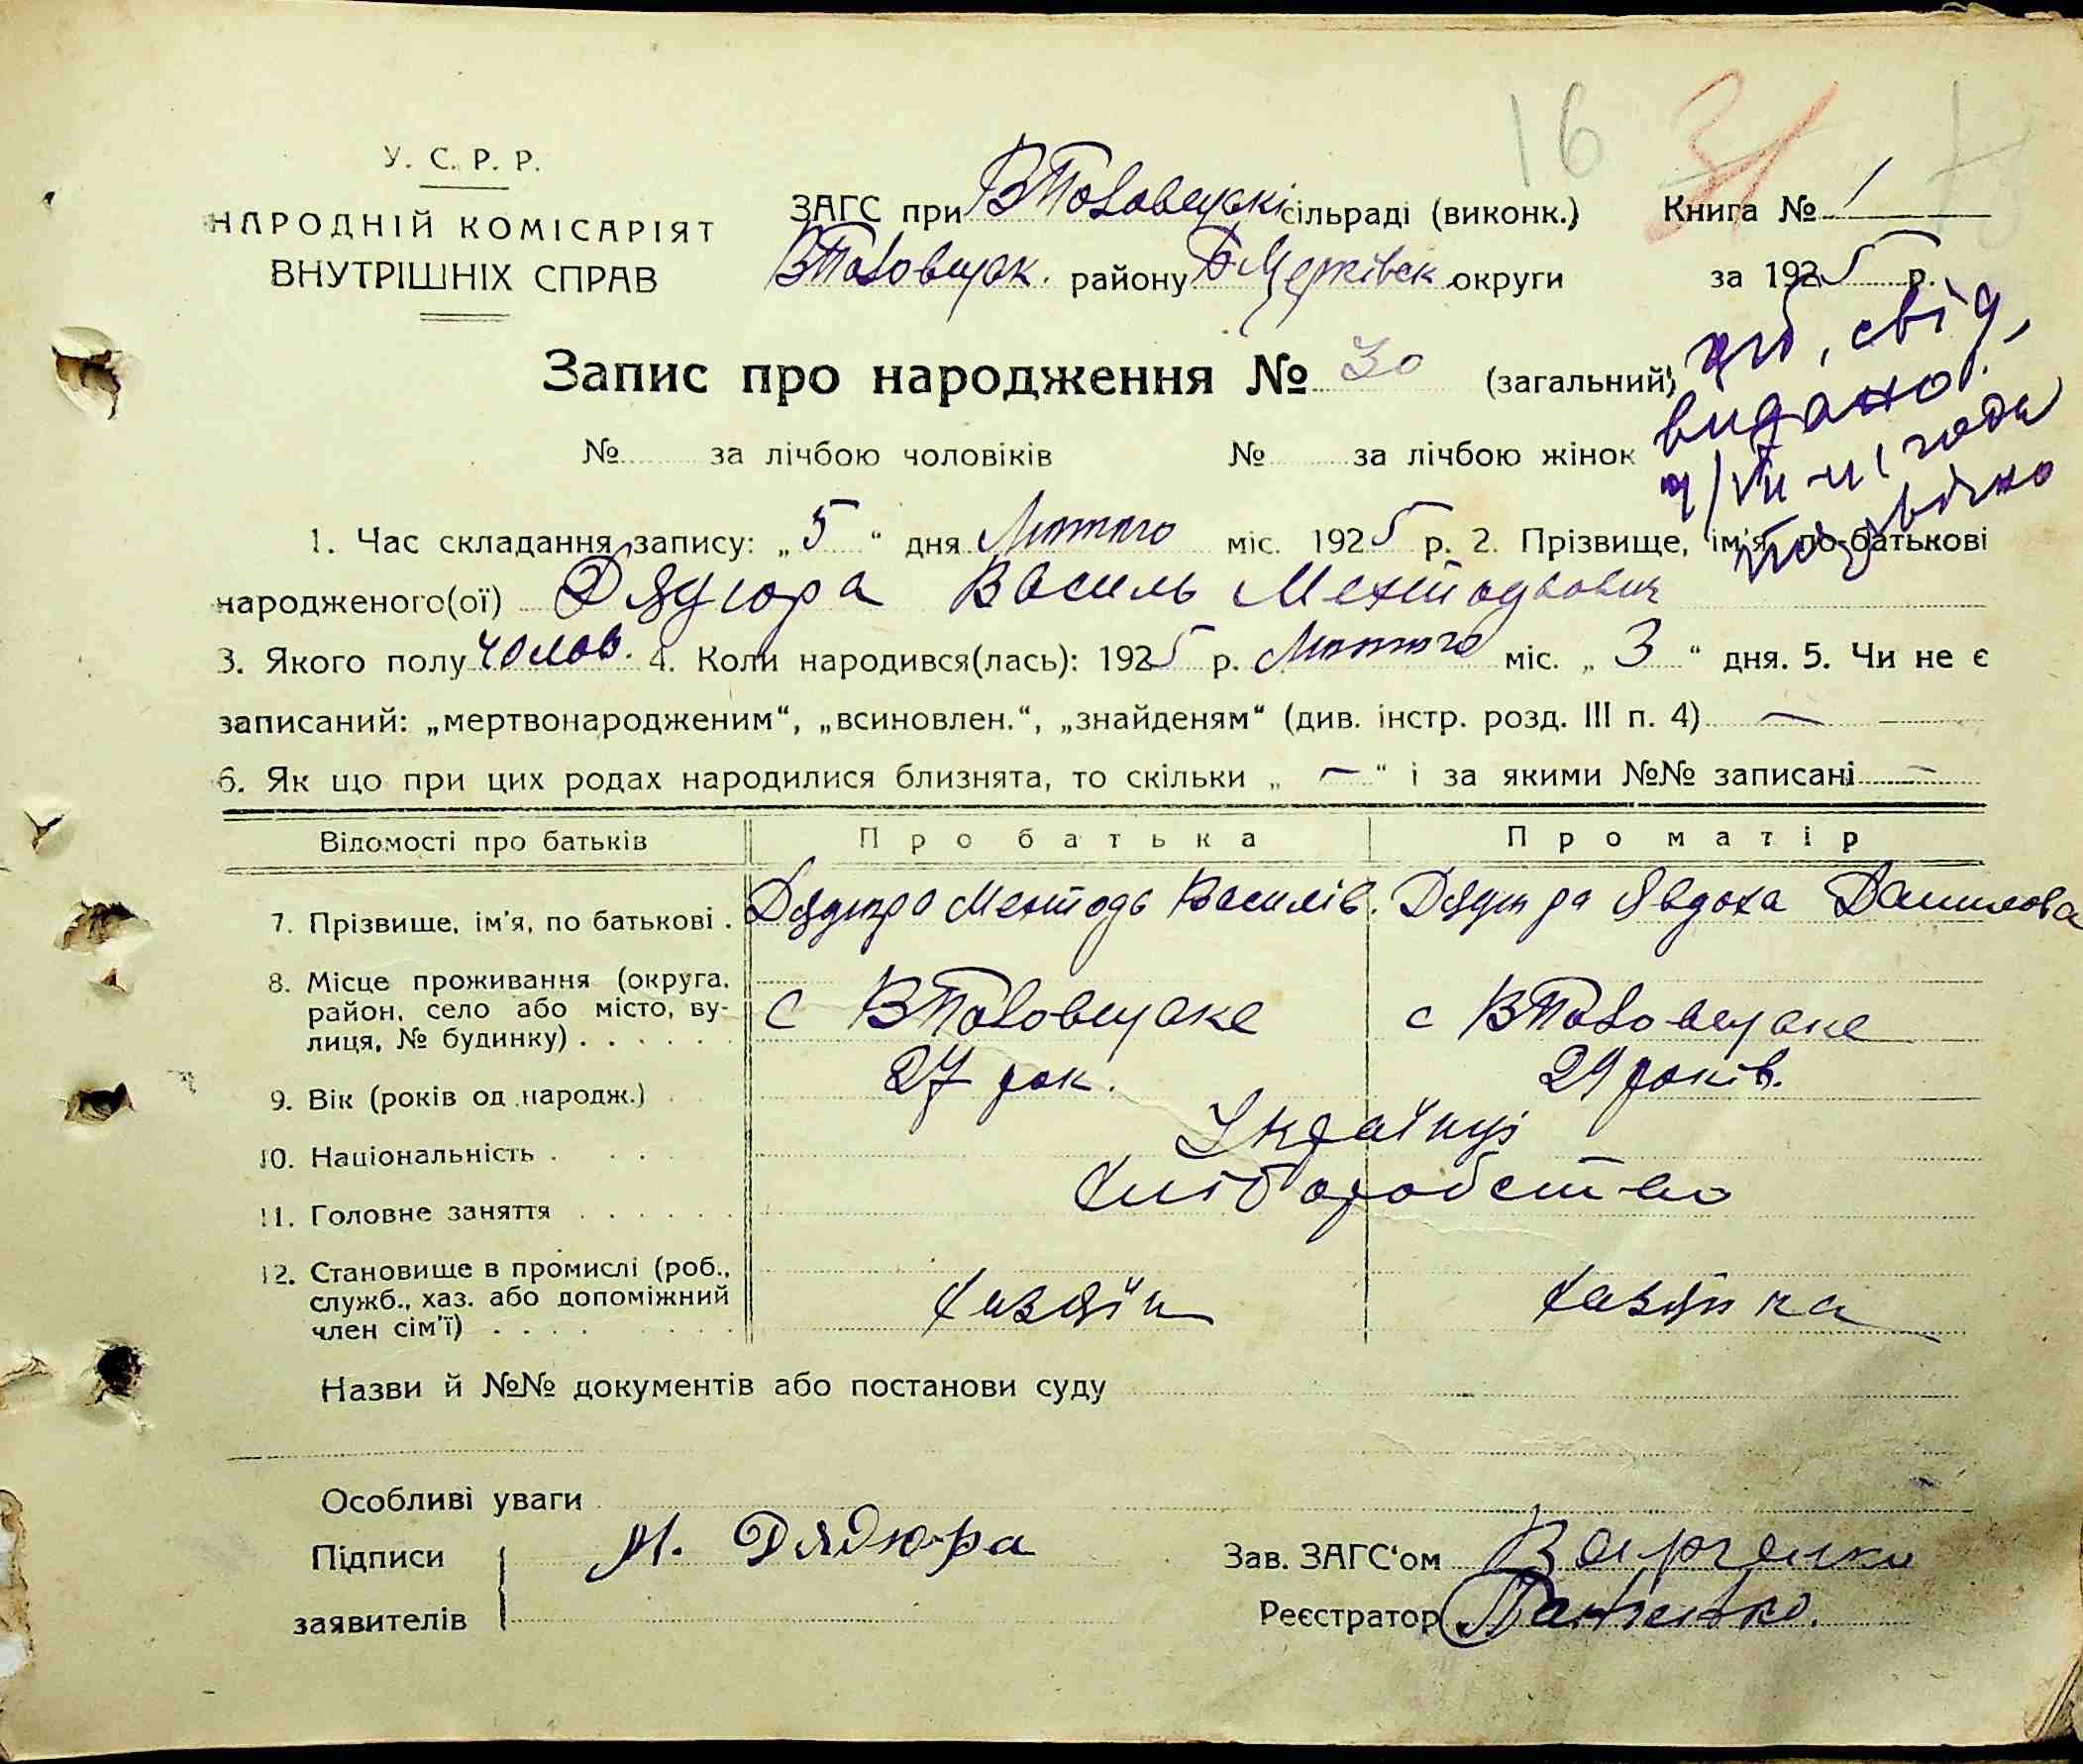 16 31
У. С. Р. Р.
НАРОДНІЙ КОМІСАРІЯТ
ВНУТРІШНІХ СПРАВ
ЗАГС при ВПоловецькі сільраді (виконк.) Книга № 1
ВПоловецьк. району БЦерківськ округи за 1925 р.
Запис про народження № 30 (загальний)
свід,
видано
№ за лічбою чоловіків № за лічбою жінок
1. Час складання запису: „5“ дня Лютого міс. 1925 р. 2. Прізвище, ім'я, по-батькові
народженого(ої) Дядюра Василь Мехтодвович
3. Якого полу Чолов. 4. Коли народився(лась): 1925 р. Лютого міс. „3“ дня. 5. Чи не є
записаний: „мертвонародженим“, „всиновлен.“, „знайденям“ (див. інстр. розд. III п. 4) —
6. Як що при цих родах народилися близнята, то скільки „—“ і за якими №№ записані —
Відомості про батьків Про батька Про матір
7. Прізвище, ім'я, по батькові . Дядюра Мехтодь Василів. Дядюра Явдоха Данилова
8. Місце проживання (округа,
район, село або місто, ву-
лиця, № будинку) . . . . . . с ВПоловецьке с ВПоловецьке
9. Вік (років од народж.) 27 рок. 29 років.
10. Національність . . . . Українці
11. Головне заняття . . . . . . Хліборобство
12. Становище в промислі (роб.,
служб., хаз. або допоміжний
член сім'ї) . . . . . . Хазяїн Хазяйка
Назви й №№ документів або постанови суду
Особливі уваги
Підписи М. Дядюра Зав. ЗАГС'ом
заявителів Реєстратор